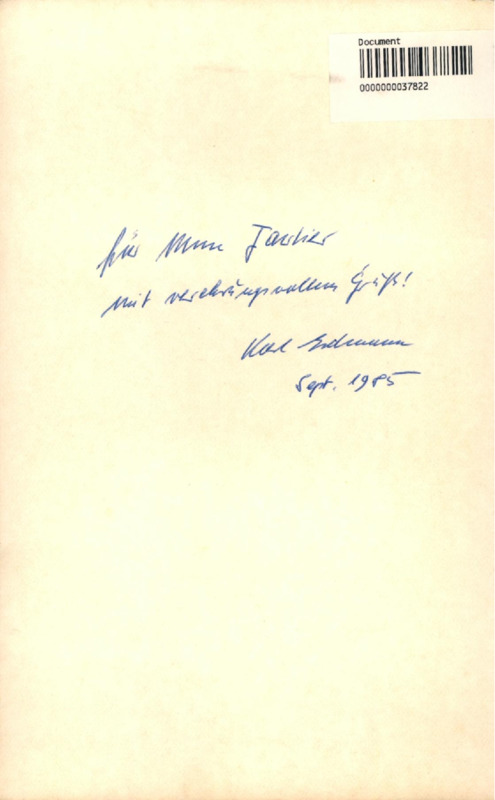 Document
0000000037822
für Mme Tautier
mit verehrungsvollem Gruß!
Karl Erdmann
Sept. 1985